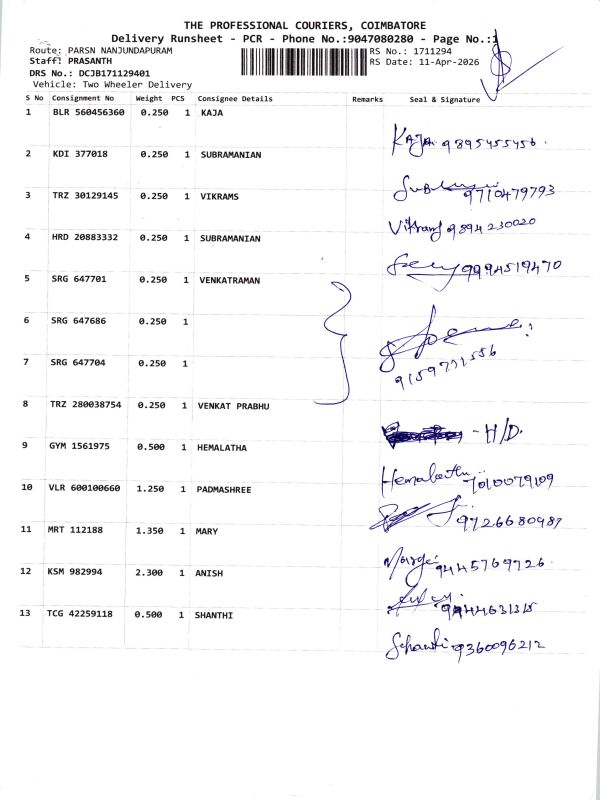 THE PROFESSIONAL COURIERS, COIMBATORE
Delivery Runsheet - PCR - Phone No.:9047080280 - Page No.:1
Route: PARSN NANJUNDAPURAM
RS No.: 1711294
Staff: PRASANTH
RS Date: 11-Apr-2026
DRS No.: DCJB171129401
Vehicle: Two Wheeler Delivery
S No Consignment No Weight PCS Consignee Details Remarks Seal & Signature
1 BLR 560456360 0.250 1 KAJA
KAJA 9895455456.
2 KDI 377018 0.250 1 SUBRAMANIAN
9710479793
3 TRZ 30129145 0.250 1 VIKRAMS
Vikrams 9894230020
4 HRD 20883332 0.250 1 SUBRAMANIAN
9994519470
5 SRG 647701 0.250 1 VENKATRAMAN
6 SRG 647686 0.250 1
7 SRG 647704 0.250 1
9159771556
8 TRZ 280038754 0.250 1 VENKAT PRABHU
- H/D.
9 GYM 1561975 0.500 1 HEMALATHA
Hemalatha 7010079109
10 VLR 600100660 1.250 1 PADMASHREE
9726680987
11 MRT 112188 1.350 1 MARY
9445769726
12 KSM 982994 2.300 1 ANISH
13 TCG 42259118 0.500 1 SHANTHI
9360096212